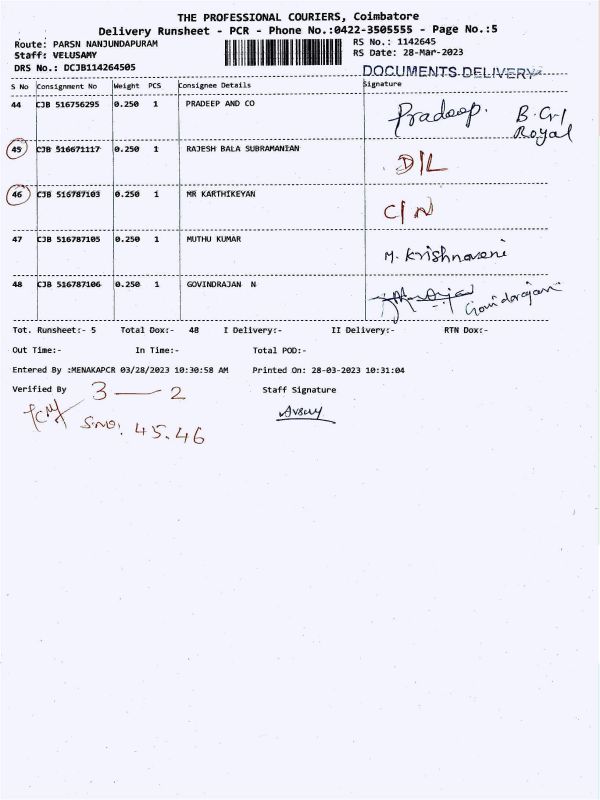 THE PROFESSIONAL COURIERS, Coimbatore
Delivery Runsheet - PCR - Phone No.:0422-3505555 - Page No.:5
Route: PARSN NANJUNDAPURAM
Staff: VELUSAMY
DRS No.: DCJB114264505
RS No.: 1142645
RS Date: 28-Mar-2023
DOCUMENTS DELIVERY
S No Consignment No Weight PCS Consignee Details Signature
44 CJB 516756295 0.250 1 PRADEEP AND CO Pradeep. B.Gr1
Royal
45 CJB 516671117 0.250 1 RAJESH BALA SUBRAMANIAN D/L
46 CJB 516787103 0.250 1 MR KARTHIKEYAN C/N
47 CJB 516787105 0.250 1 MUTHU KUMAR M. Krishnaveni
48 CJB 516787106 0.250 1 GOVINDRAJAN N Govindarajan
Tot. Runsheet:- 5 Total Dox:- 48 I Delivery:- II Delivery:- RTN Dox:-
Out Time:- In Time:- Total POD:-
Entered By :MENAKAPCR 03/28/2023 10:30:58 AM Printed On: 28-03-2023 10:31:04
Verified By 3 — 2 Staff Signature
S.NO: 45.46